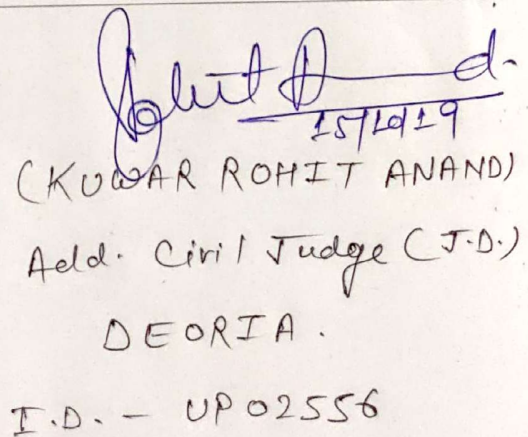 Rohit Anand.
15/10/19
(KUWAR ROHIT ANAND)
Add. Civil Judge (J.D.)
DEORIA.
I.D. - UP02556